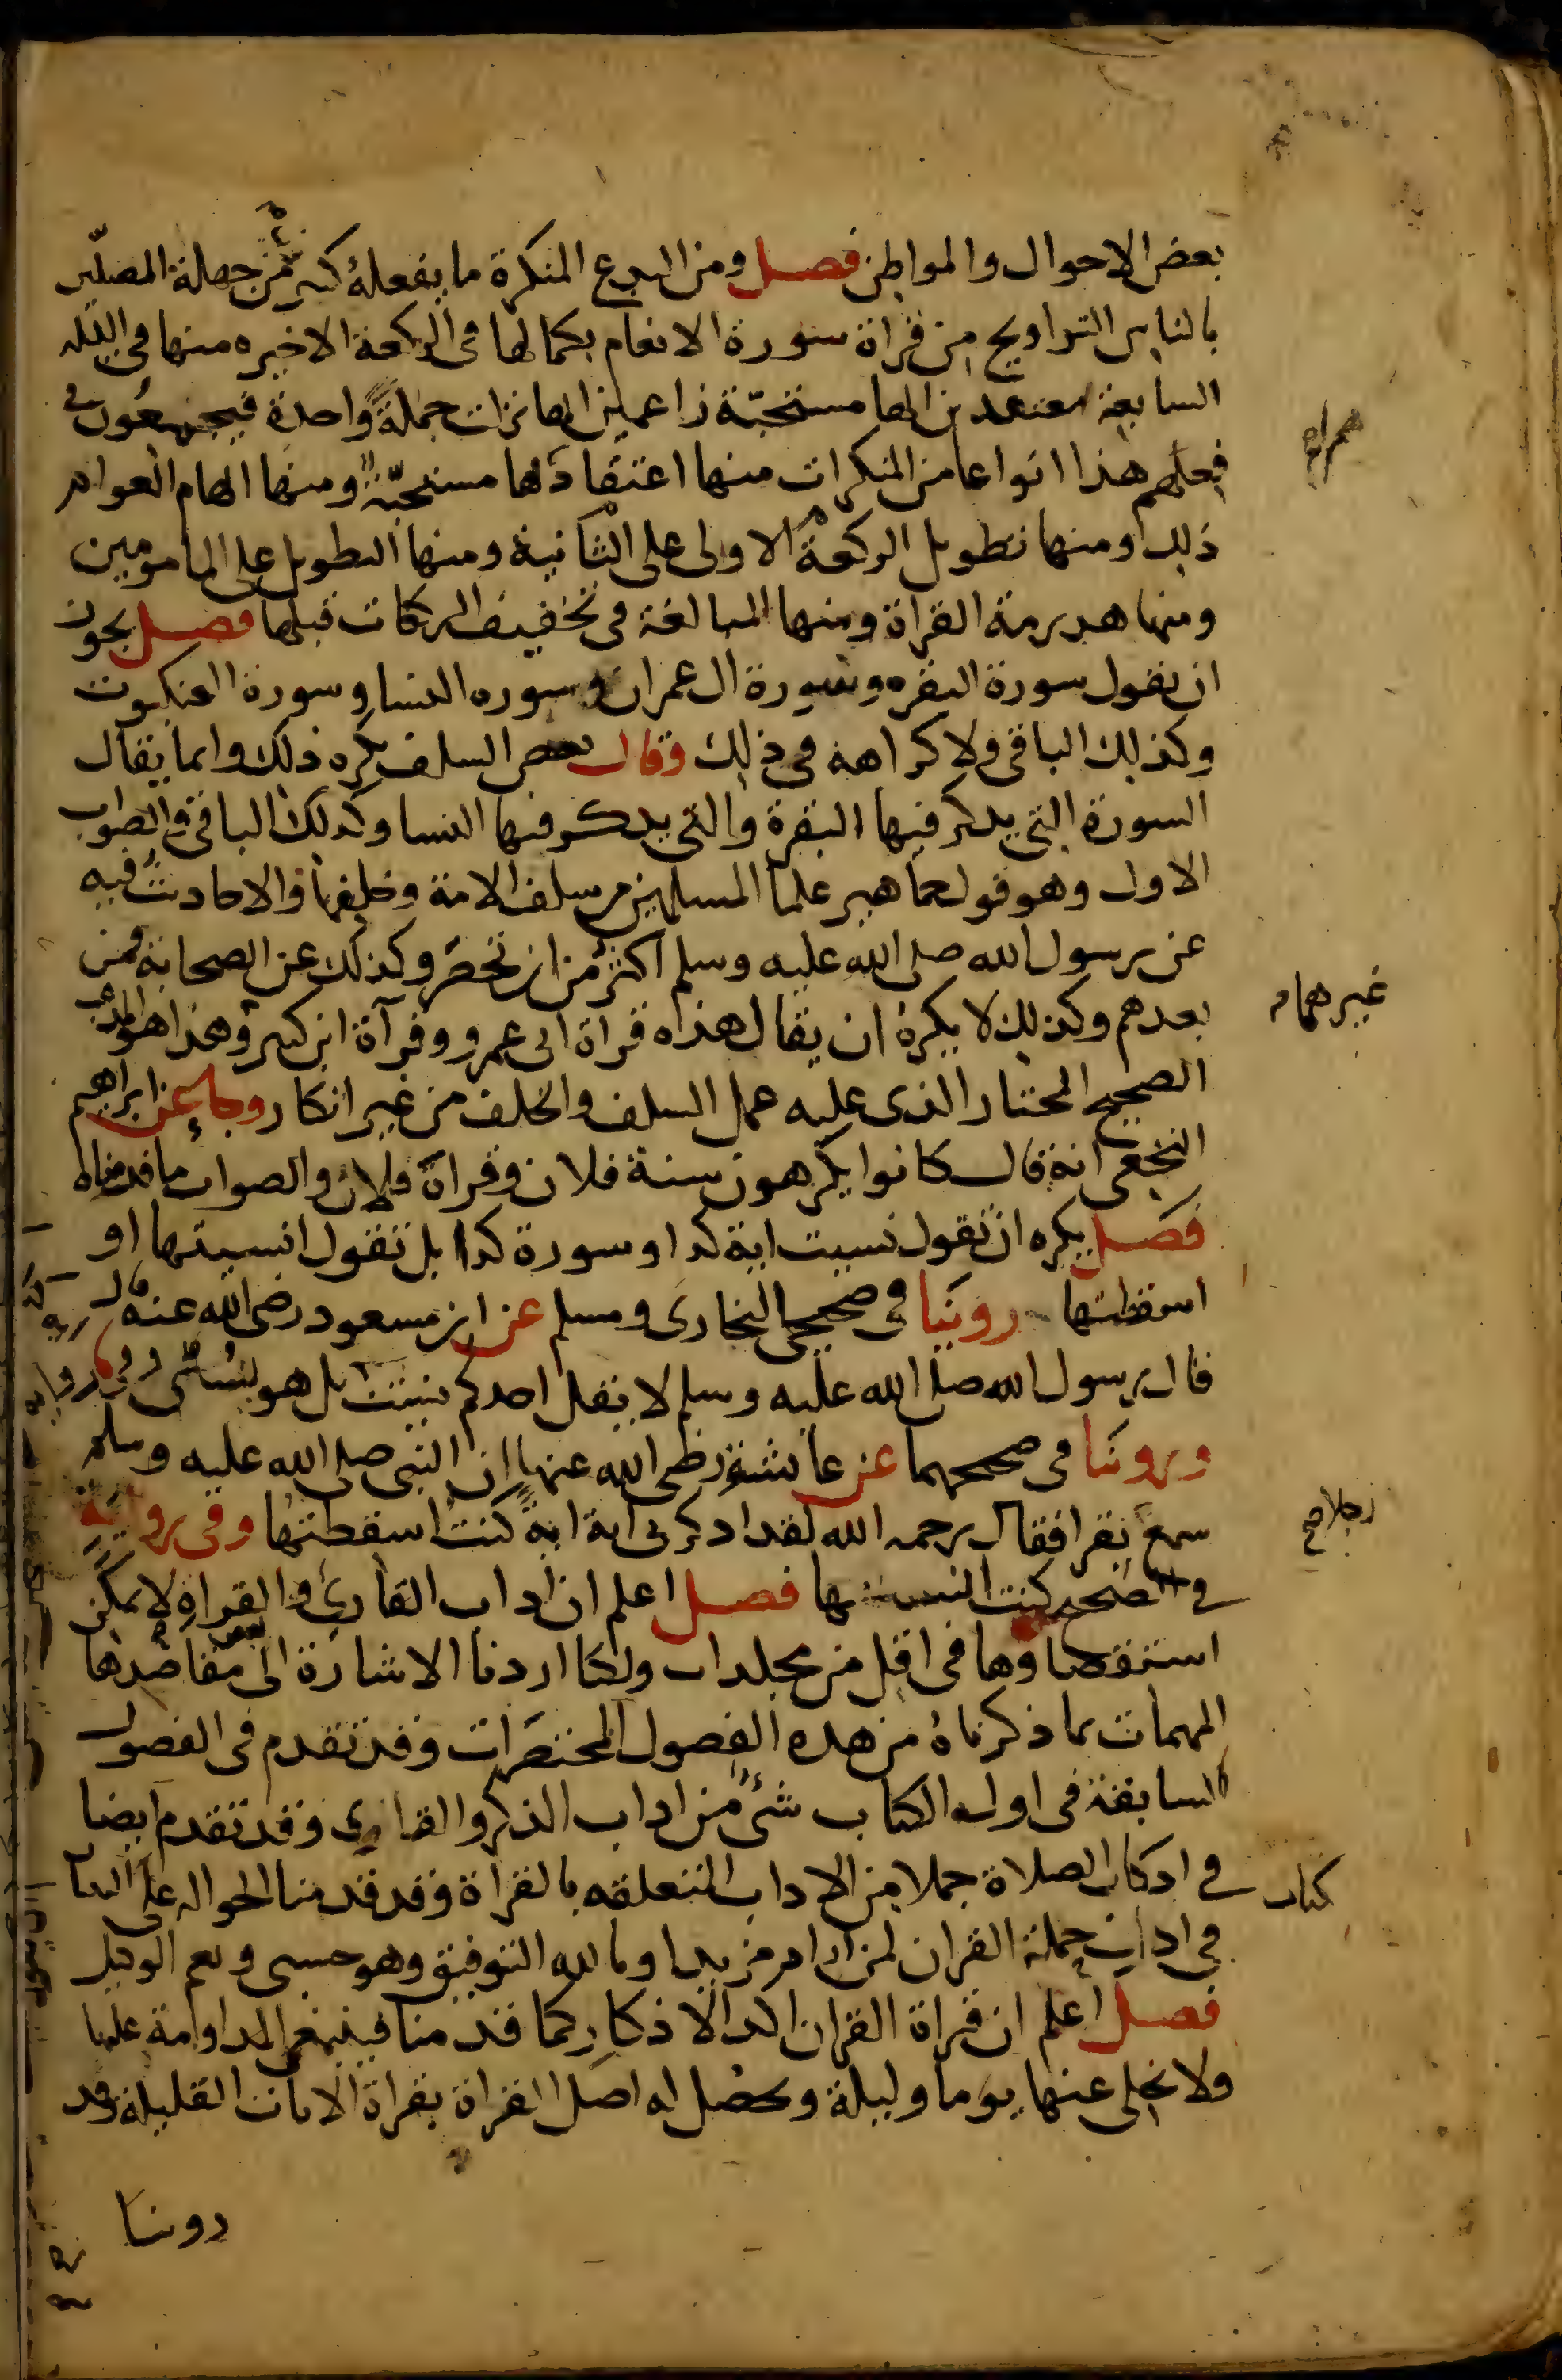 بعض الاحوال والمواطن فصل ومن البدع المنكرة ما يفعله كثير من جهلة المصلين
بالناس التراويح من قراة سورة الانعام بكمالها فى الركعة الاخيره منها فى الليله
السابعة معتقدين انها مستحبّة زاعمين انها نزلت جملةً واحدة فيجمعون فى
فعلهم هذا انواعا من المنكرات منها اعتقادها مستحبّة ومنها ايهام العوام
ذلك ومنها تطويل الركعة الاولى على الثانية ومنها التطويل على المامومين
ومنها هدرمة القراة ومنها المبالغة فى تخفيف الركعات قبلها فصل يجوز
ان نقول سورة البقره وسورة ال عمران وسوره النسا وسورة العنكبوت
وكذلك الباقى ولا كراهة فى ذلك وقال بعض السلف يكره ذلك وانما يقال
السورة التى يذكر فيها البقرة والتى يذكر فيها النسا وكذلك الباقى والصواب
الاول وهو قول جماهير علما المسلمين من سلف الامة وخلفها والاحاديث فيه
عن رسول الله صلى الله عليه وسلم اكثر من ان تحصر وكذلك عن الصحابة فمن
بعدهم وكذلك لا يكره ان يقال هذه قراة ابى عمرو وقرآة ابن كثير وهذا هو المذهب
الصحيح المختار الذى عليه عمل السلف والخلف من غير انكار وجا عن ابراهيم
النخعى انه قال كانوا يكرهون سنة فلان وقراة فلان والصواب ما قدمناه
فصل يكره ان تقول نسيت اية كذا او سورة كذا بل تقول انسيتها او
اسقطتها روينا فى صحيحى البخارى ومسلم عن ابن مسعود رضى الله عنه قال
قال رسول الله صلى الله عليه وسلم لا يقل احدكم نسيت بل هو نسى وفى رواية
وروينا فى صحيحهما عن عائشة رضى الله عنها ان النبى صلى الله عليه وسلم
سمع يقرا فقال رحمه الله لقد اذكرنى اية اية كنت اسقطتها وفى رواية
فى الصحيح كنت انسيتها فصل اعلم ان اداب القارئ والقراة لا يمكن
استقصاوها فى اقل من مجلدات ولكنا اردنا الاشارة الى بعض مقاصدها
المهمات بما ذكرناه من هذه الفصول المختصرات وقد تقدم فى الفصول
السابقة فى اول الكتاب شئ من اداب الذكر والقارى وقد تقدم ايضا
فى اذكار الصلاة جملا من الاداب المتعلقه بالقراة وقد قدمنا الحواله على التبيان
فى اداب حملة القران لمن اراد مزيدا وبالله التوفيق وهو حسبى ونعم الوكيل
فصل اعلم ان قراة القران اكد الاذكار كما قدمنا فينبغى المداومة عليها
ولا يخلى عنها يوما وليلة ويحصل له اصل القراة بقراة الايات القليلة وقد
روينا
غيرهما
رجلا صح
كتاب